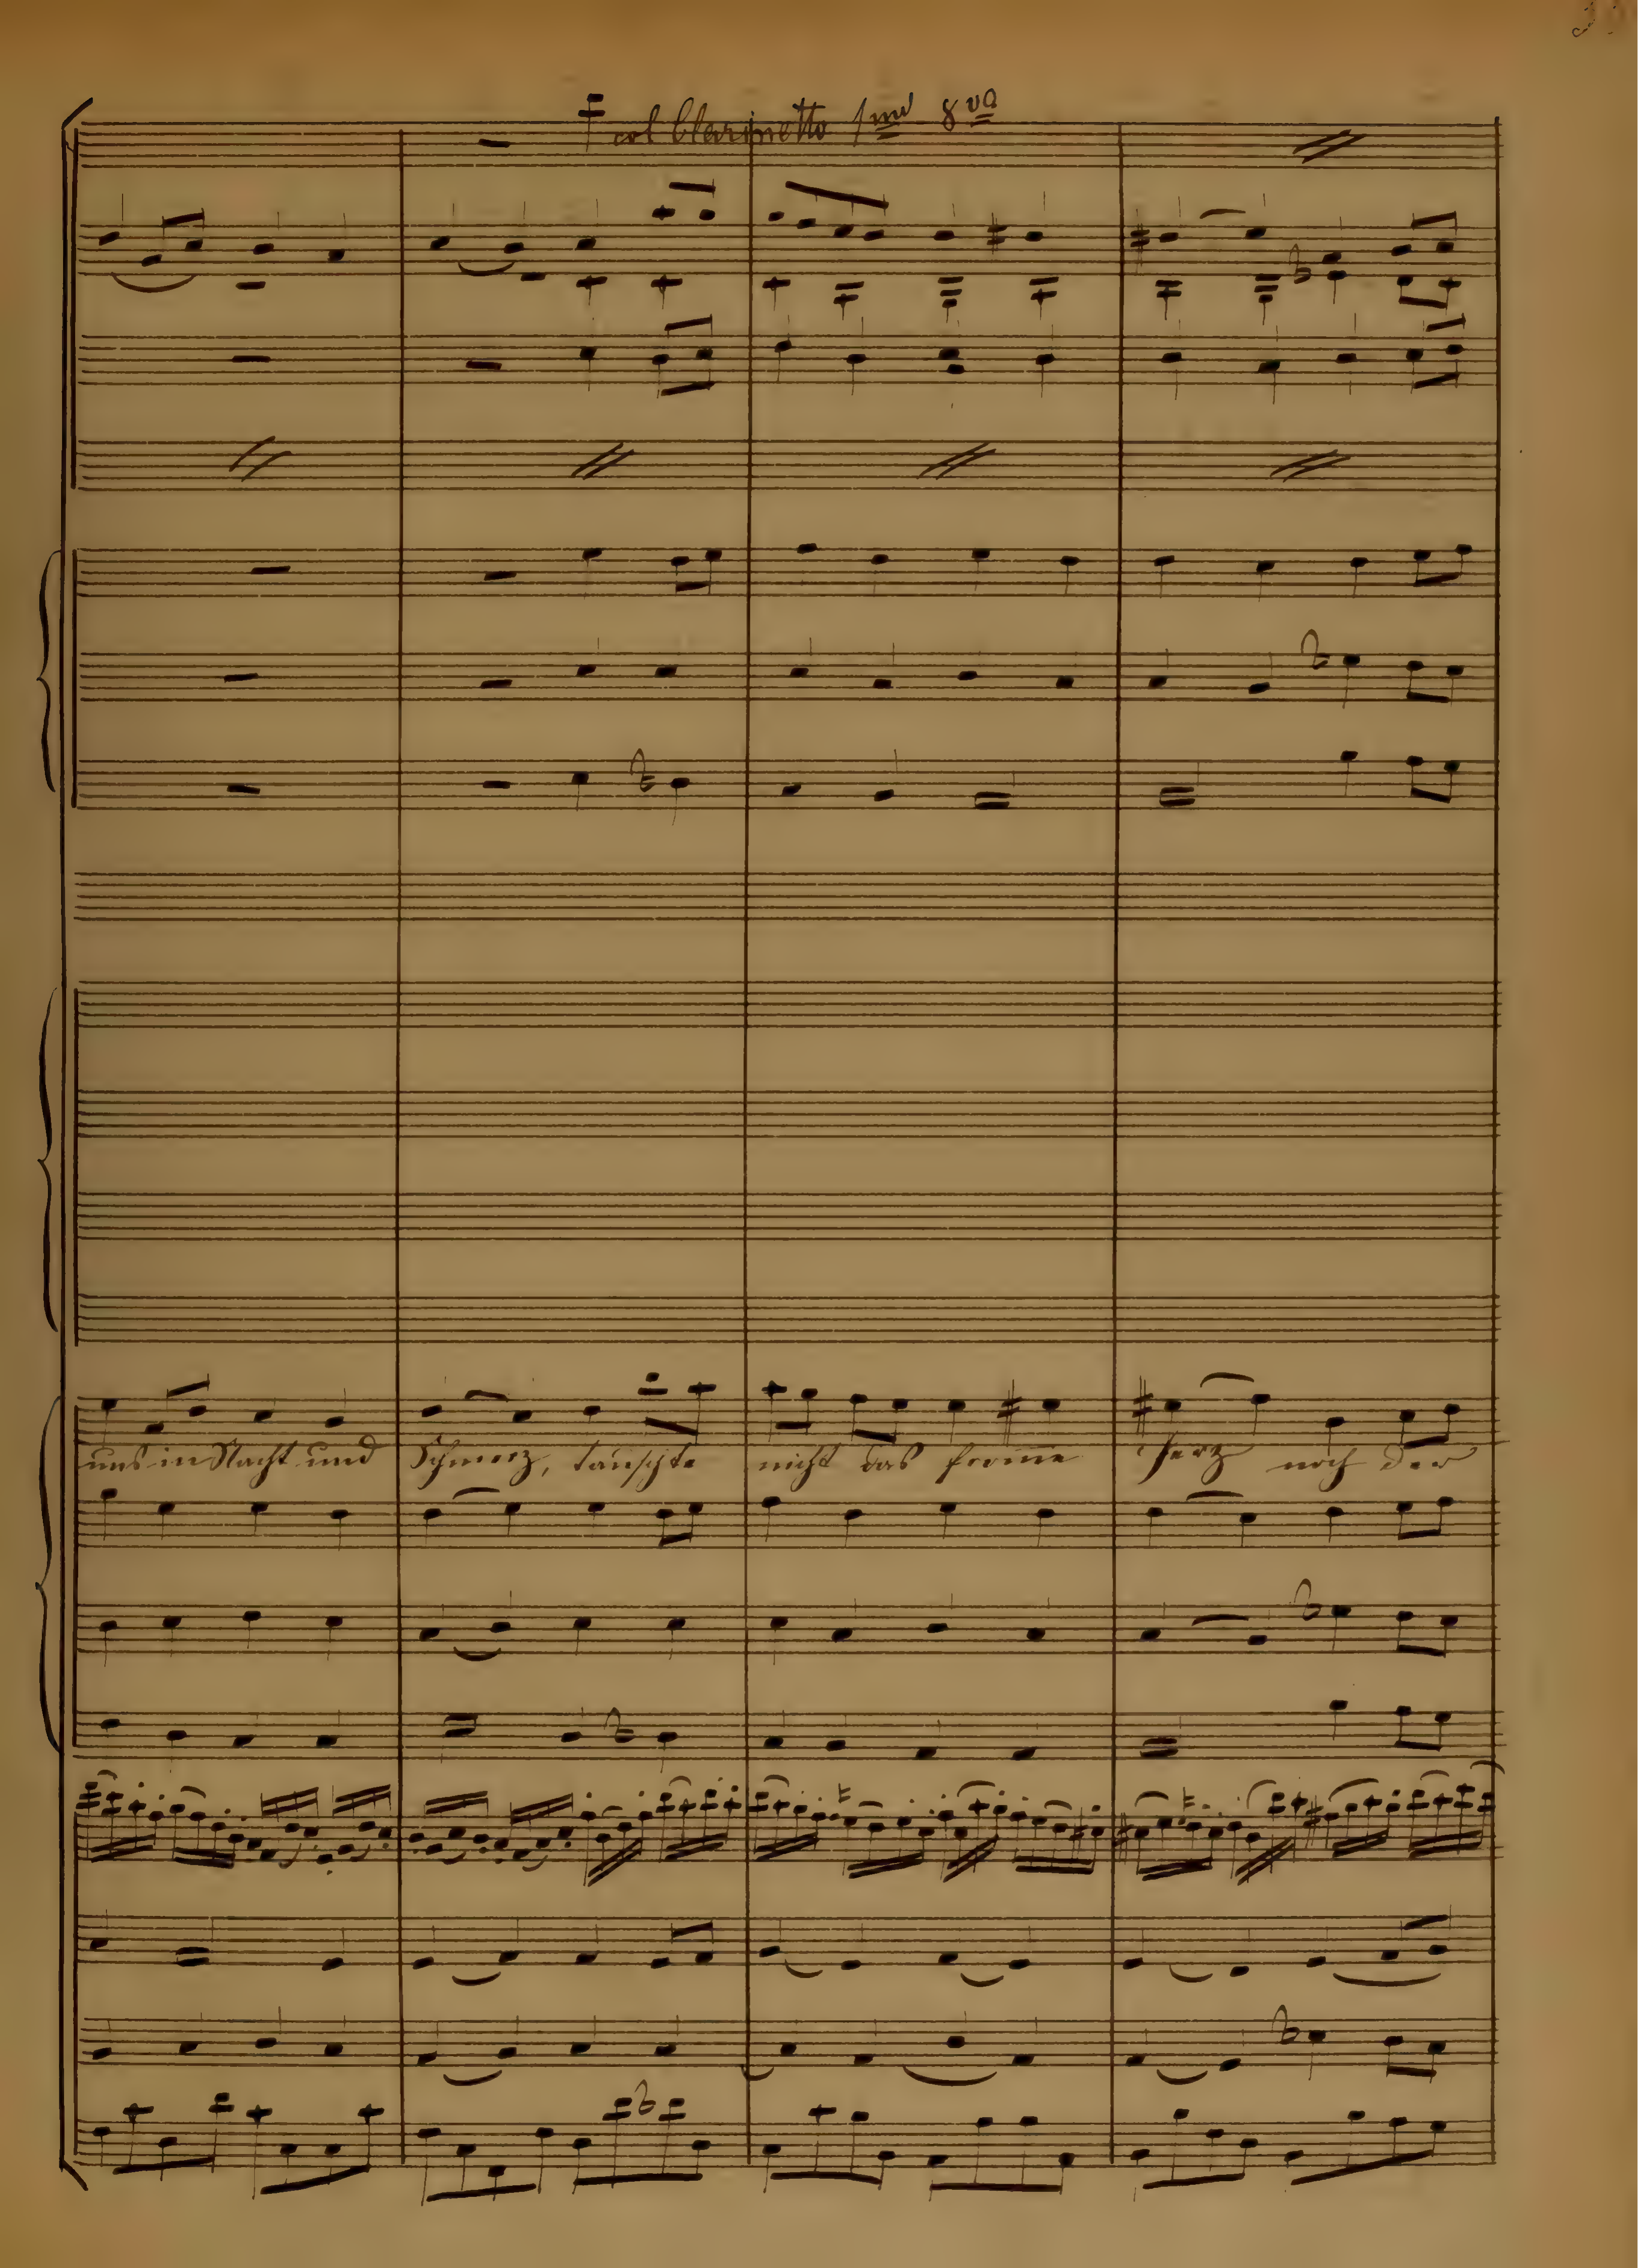 col Clarinetto 1mo 8va
uns in Nacht und Schmerz, täuschte nicht das from̅e Herz noch der